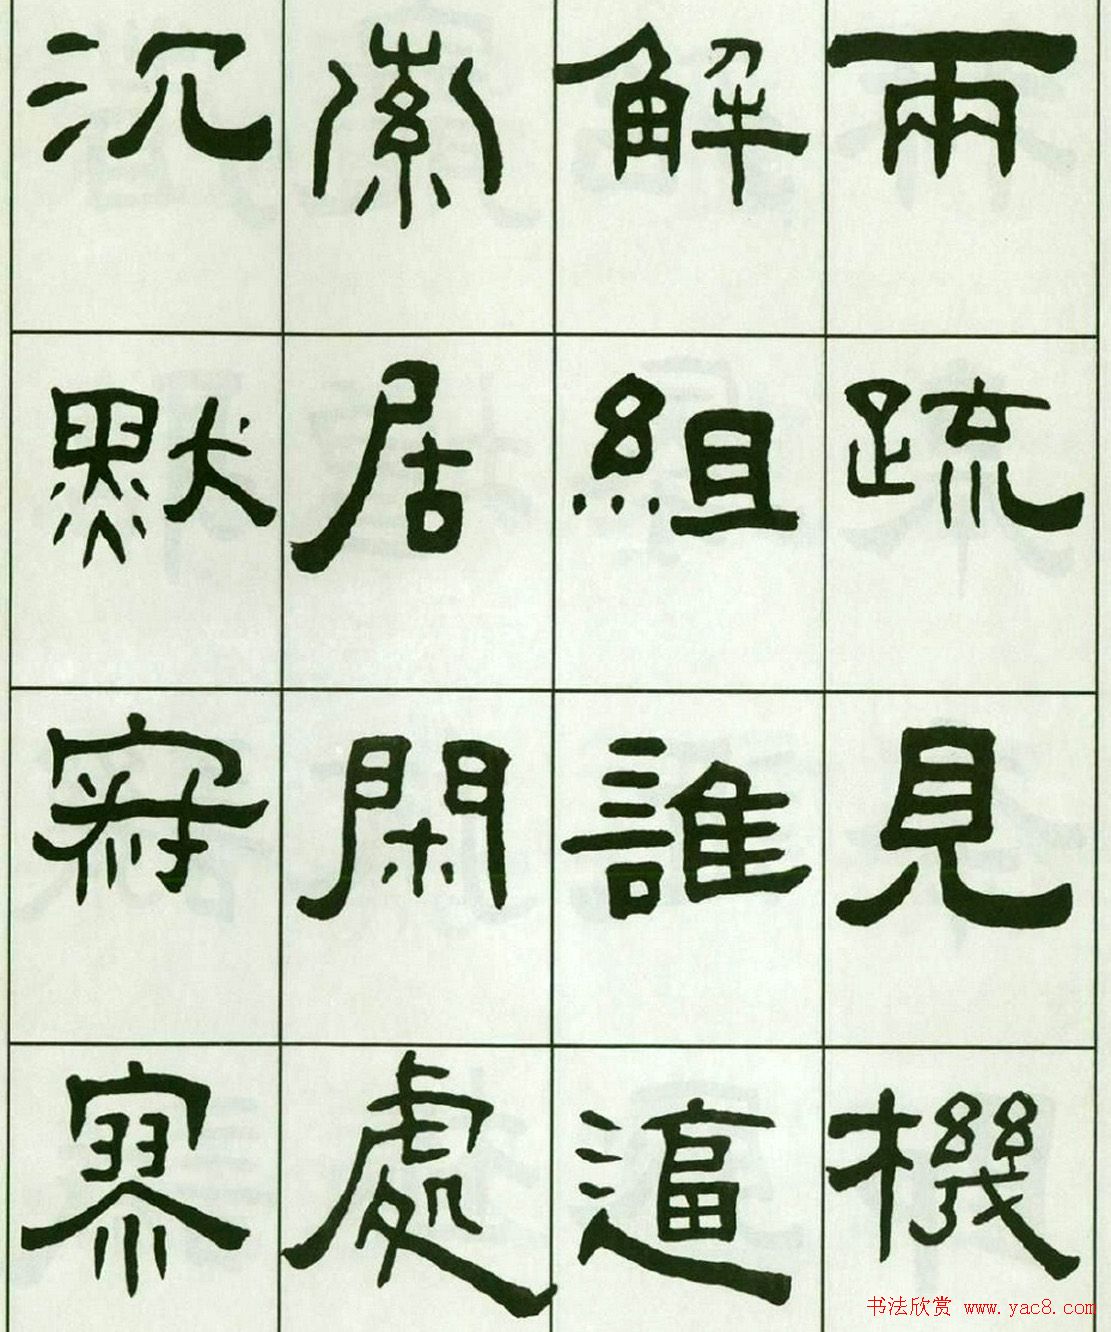 兩疏見機
解組誰逼
索居閑處
沉默寂寥
书法欣赏 www.yac8.com